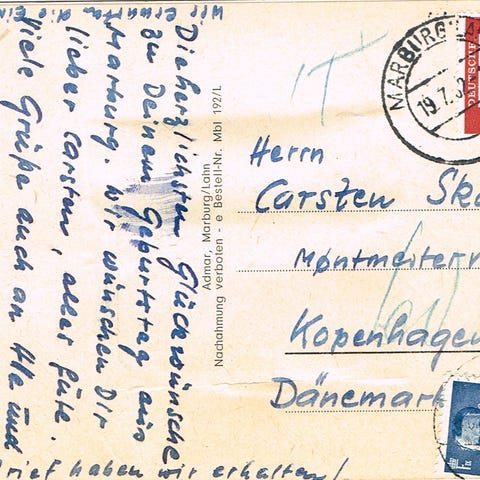 Die herzlichsten Glückwünsche
zu Deinem Geburtstag aus
Marburg. Wir wünschen Dir
lieber Carsten, alles Gute.
Viele Grüße auch an Alle und
wir erwarten
Brief haben wir erhalten!
Admar, Marburg/Lahn
Nachahmung verboten - e Bestell-Nr. Mbl 192/L
MARBURG
19.7.
Herrn
Carsten
Møntmesterv
Kopenhagen
Dänemark